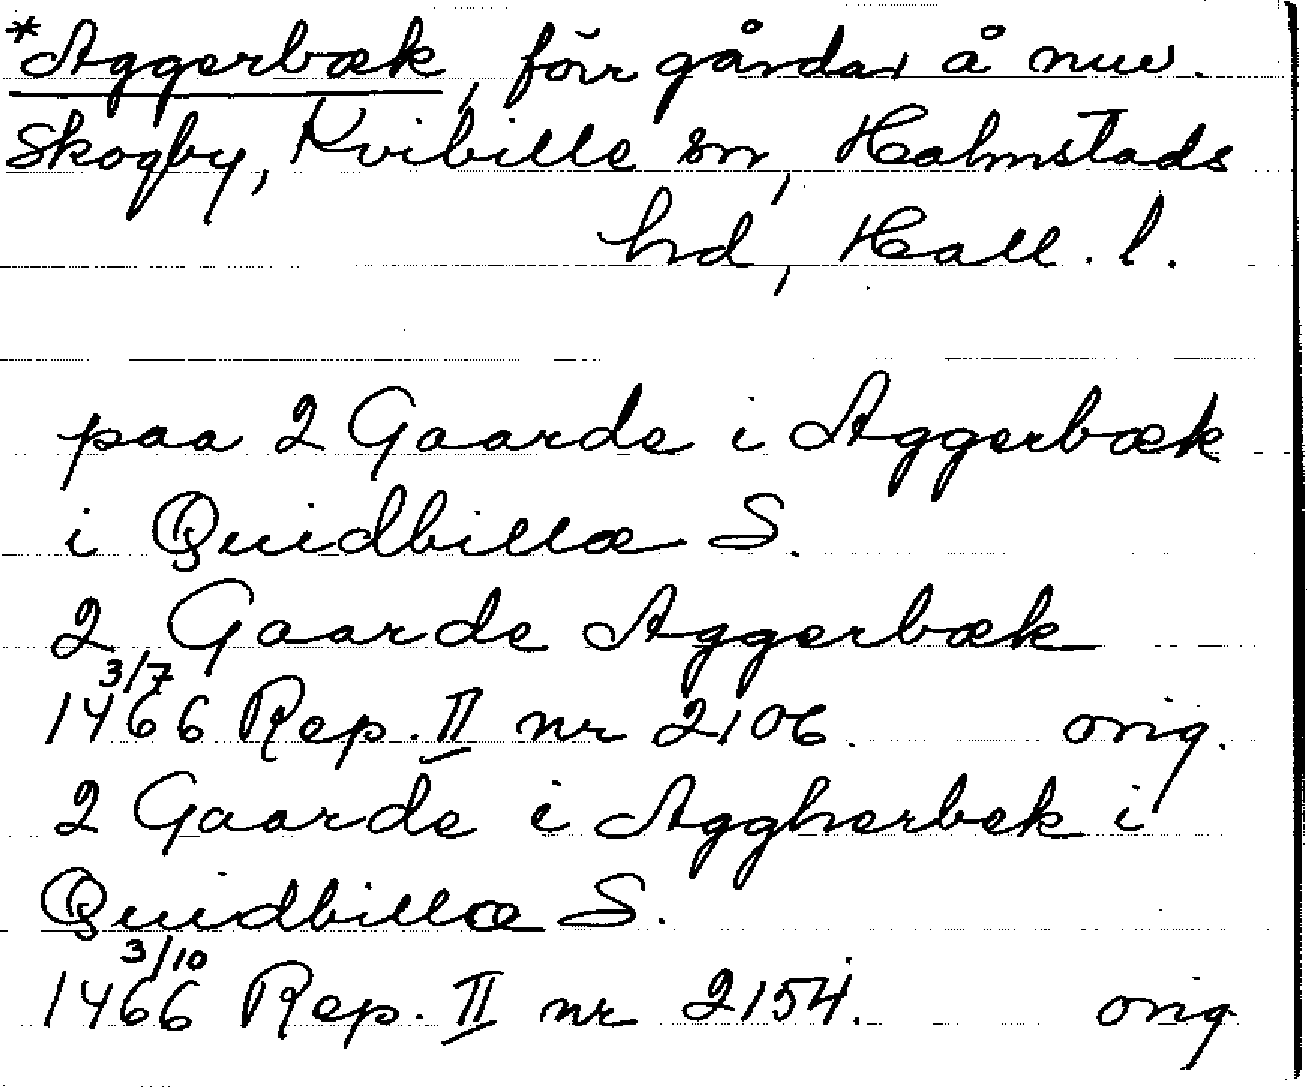 *Aggerbæk, förr gårdar å nuv.
Skogby, Kvibille sn, Halmstads
hd, Hall. l.
paa 2 Gaarde i Aggerbæk
i Quidbillæ S.
2 Gaarde Aggerbæk
3/7
1466 Rep. II nr 2106. orig.
2 Gaarde i Aggherbek i
Quidbillæ S.
3/10
1466 Rep. II nr 2154. orig